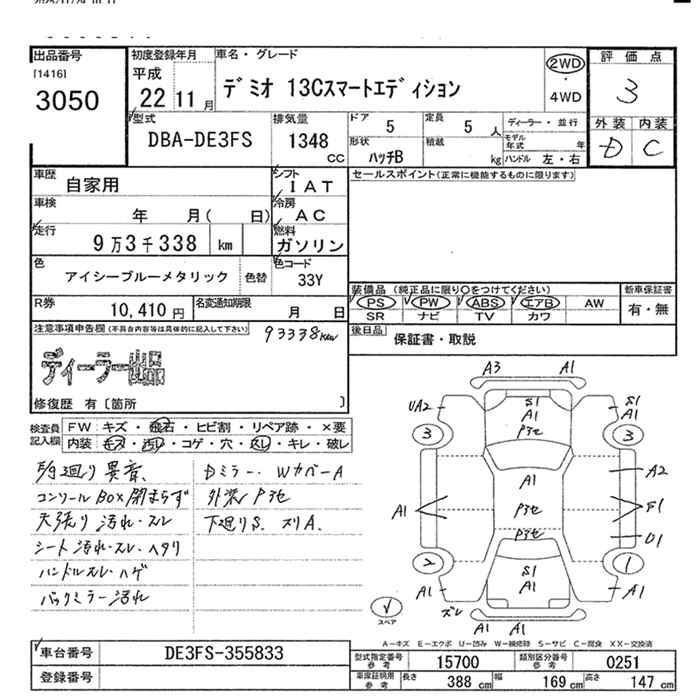 出品番号
[1416]
3050
初度登録年月
平成
22 11月
車名・グレード
デミオ 13Cスマートエディション
2WD
・
4WD
評価点
3
外装 内装
D C
型式
DBA-DE3FS
排気量
1348
CC
ドア 5
定員 5 人
形状 ハッチB
積載 kg
ディーラー・並行
モデル年式 年
ハンドル 左・右
車歴
自家用
シフト
IAT
車検
年 月( 日)
冷房
AC
走行
9万3千338 km
燃料
ガソリン
色
アイシーブルーメタリック
色替
色コード
33Y
R券
10,410円
名変通知期限
月 日
セールスポイント(正常に機能するものに限ります)
装備品(純正品に限り○をつけてください)
PS PW ABS エアB AW
SR ナビ TV カワ
新車保証書
有・無
後日品
保証書・取説
注意事項申告欄(不具合内容等は具体的に記入して下さい)
93338km
ディーラー
修復歴 有〔箇所 〕
検査員記入欄
FW キズ・飛石・ヒビ割・リペア跡・×要
内装 キズ・汚れ・コゲ・穴・スレ・キレ・破レ
コンソールBOX閉まらず
天張り汚れ・スレ
シート汚れ・スレ・ヘタリ
ハンドルスレ・ハゲ
バックミラー汚れ
Dミラー・WカバーA
下廻りS.スリA.
A3 A1
UA2 S1 A1 S1 A1
3 3
A1 A2
A1 F1
D1
2 1
A1 S1 A1 A1
ズレ
A1 A1
スペア
A-キズ E-エクボ U-凹み W-補修跡 S-サビ C-腐食 XX-交換済
車台番号
DE3FS-355833
登録番号
型式指定番号 参考
15700
類別区分番号 参考
0251
車庫証明用 参考
長さ 388 cm
幅 169 cm
高さ 147 cm